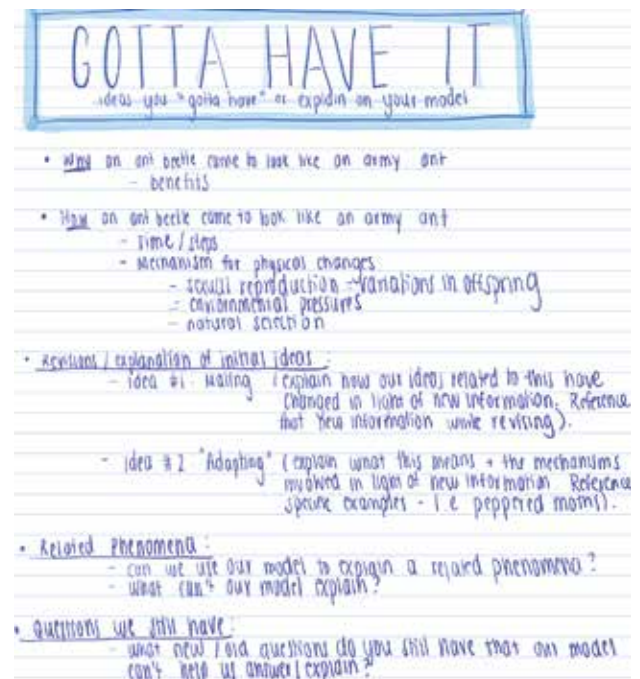 GOTTA HAVE IT
ideas you "gotta have" or explain on your model
• Why an ant beetle came to look like an army ant
- benefits
• How an ant beetle came to look like an army ant
- time / steps
- Mechanism for physical changes
- sexual reproduction - variations in offspring
- environmental pressures
- natural selection
• Revisions / explanation of initial ideas:
- idea #1 Mating (explain how our ideas related to this have
changed in light of new information. Reference
that new information while revising).
- idea #2 "Adapting" (explain what this means + the mechanisms
involved in light of new information. Reference
specific examples - i.e peppered moths).
• Related Phenomena:
- can we use our model to explain a related phenomena?
- what can't our model explain?
• Questions we still have:
- what new / old questions do you still have that our model
can't help us answer / explain?